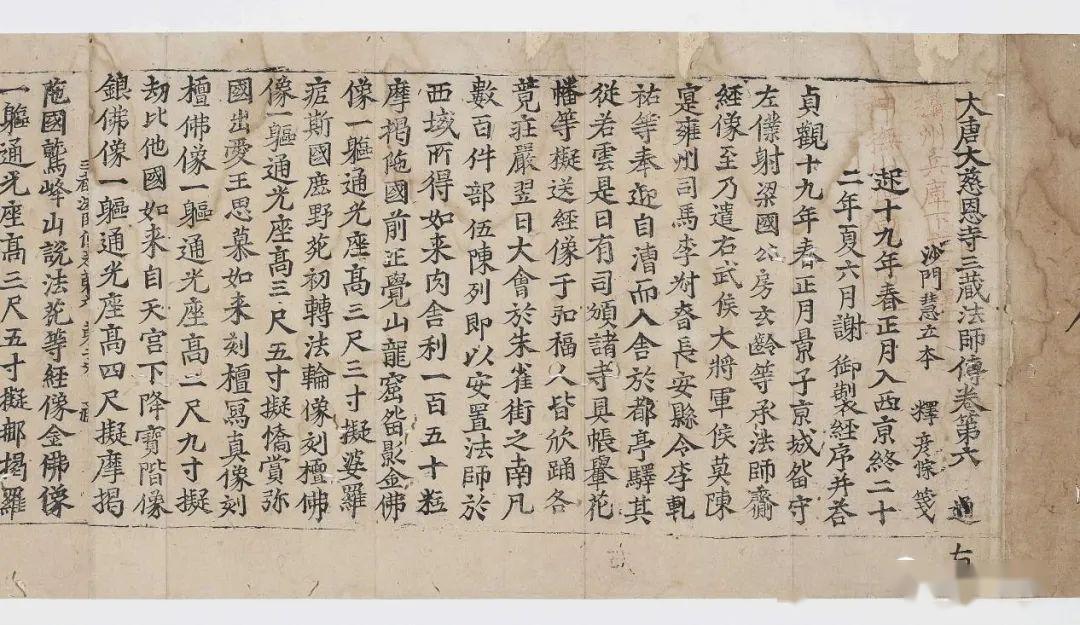 大唐大慈恩寺三藏法師傳卷第六 過
沙門慧立本 釋彥悰箋
起十九年春正月入西京終二十
二年夏六月謝 御製經序并荅
貞觀十九年春正月景子京城留守
左僕射梁國公房玄齡等承法師齎
經像至乃遣右武侯大將軍侯莫陳
寔雍州司馬李叔眘長安縣令李乹
祐等奉迎自漕而入舍於都亭驛其
從若雲是日有司頒諸寺具帳轝花
幡等擬送經像于弘福人皆欣踊各
競莊嚴翌日大會於朱雀街之南凡
數百件部伍陳列即以安置法師於
西域所得如来肉舍利一百五十粒
摩揭陁國前正覺山龍窟留影金佛
像一軀通光座高三尺三寸擬婆羅
痆斯國鹿野苑初轉法輪像刻檀佛
像一軀通光座高三尺五寸擬憍賞弥
國出愛王思慕如来刻檀寫真像刻
檀佛像一軀通光座高二尺九寸擬
劫比他國如来自天宮下降寶階像
鎮佛像一軀通光座高四尺擬摩揭
陁國鷲峰山説法花等經像金佛像
一軀通光座高三尺五寸擬那揭羅